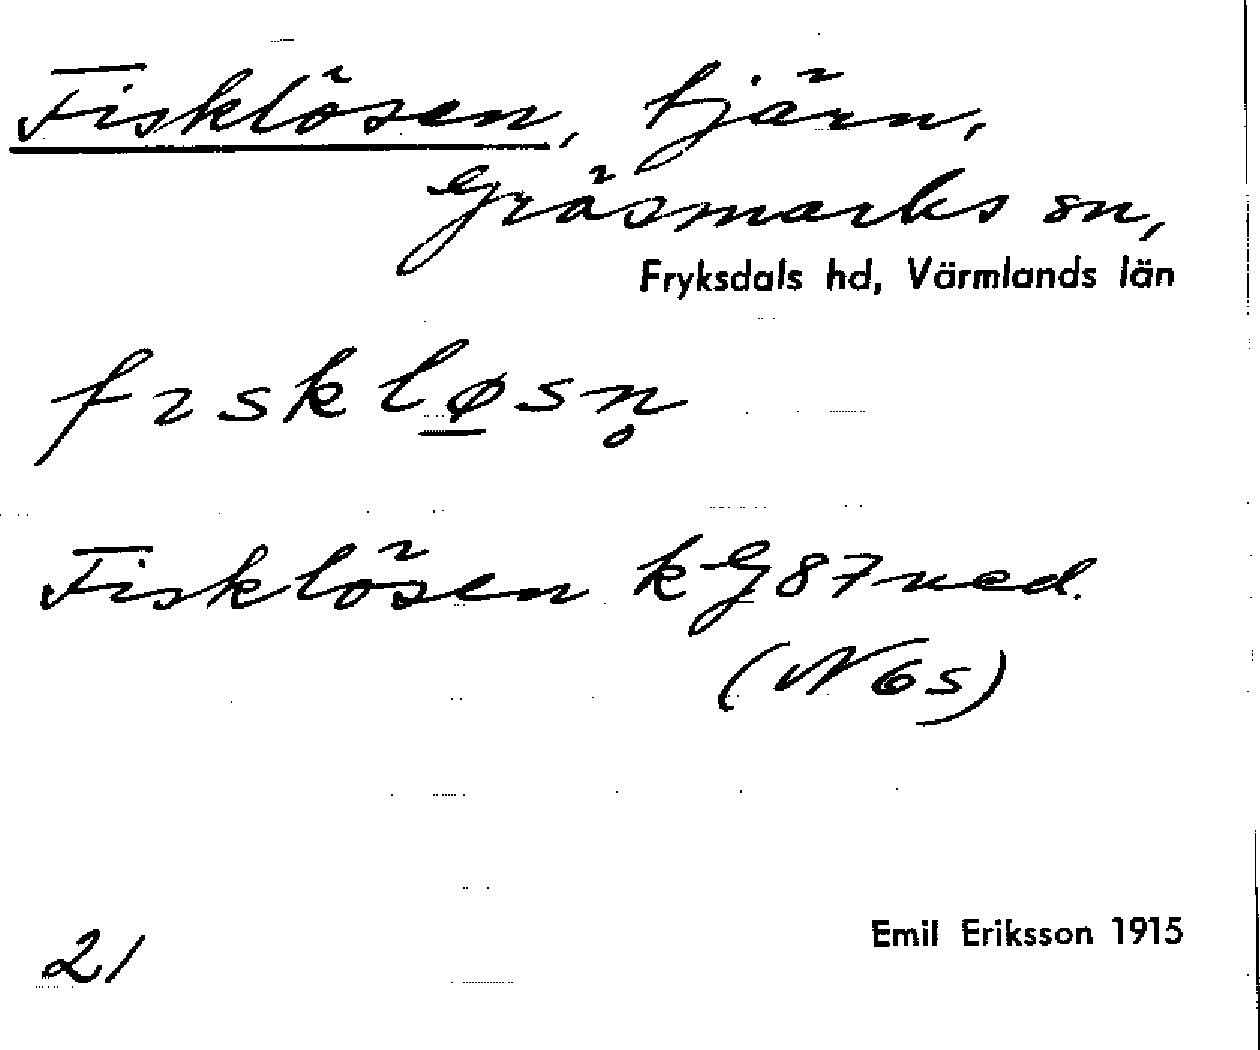 Fisklösen, tjärn,
Gräsmarks sn,
Fryksdals hd, Värmlands län
fıskløsn̥
Fisklösen kG87ned.
(N6s)
Emil Eriksson 1915
21